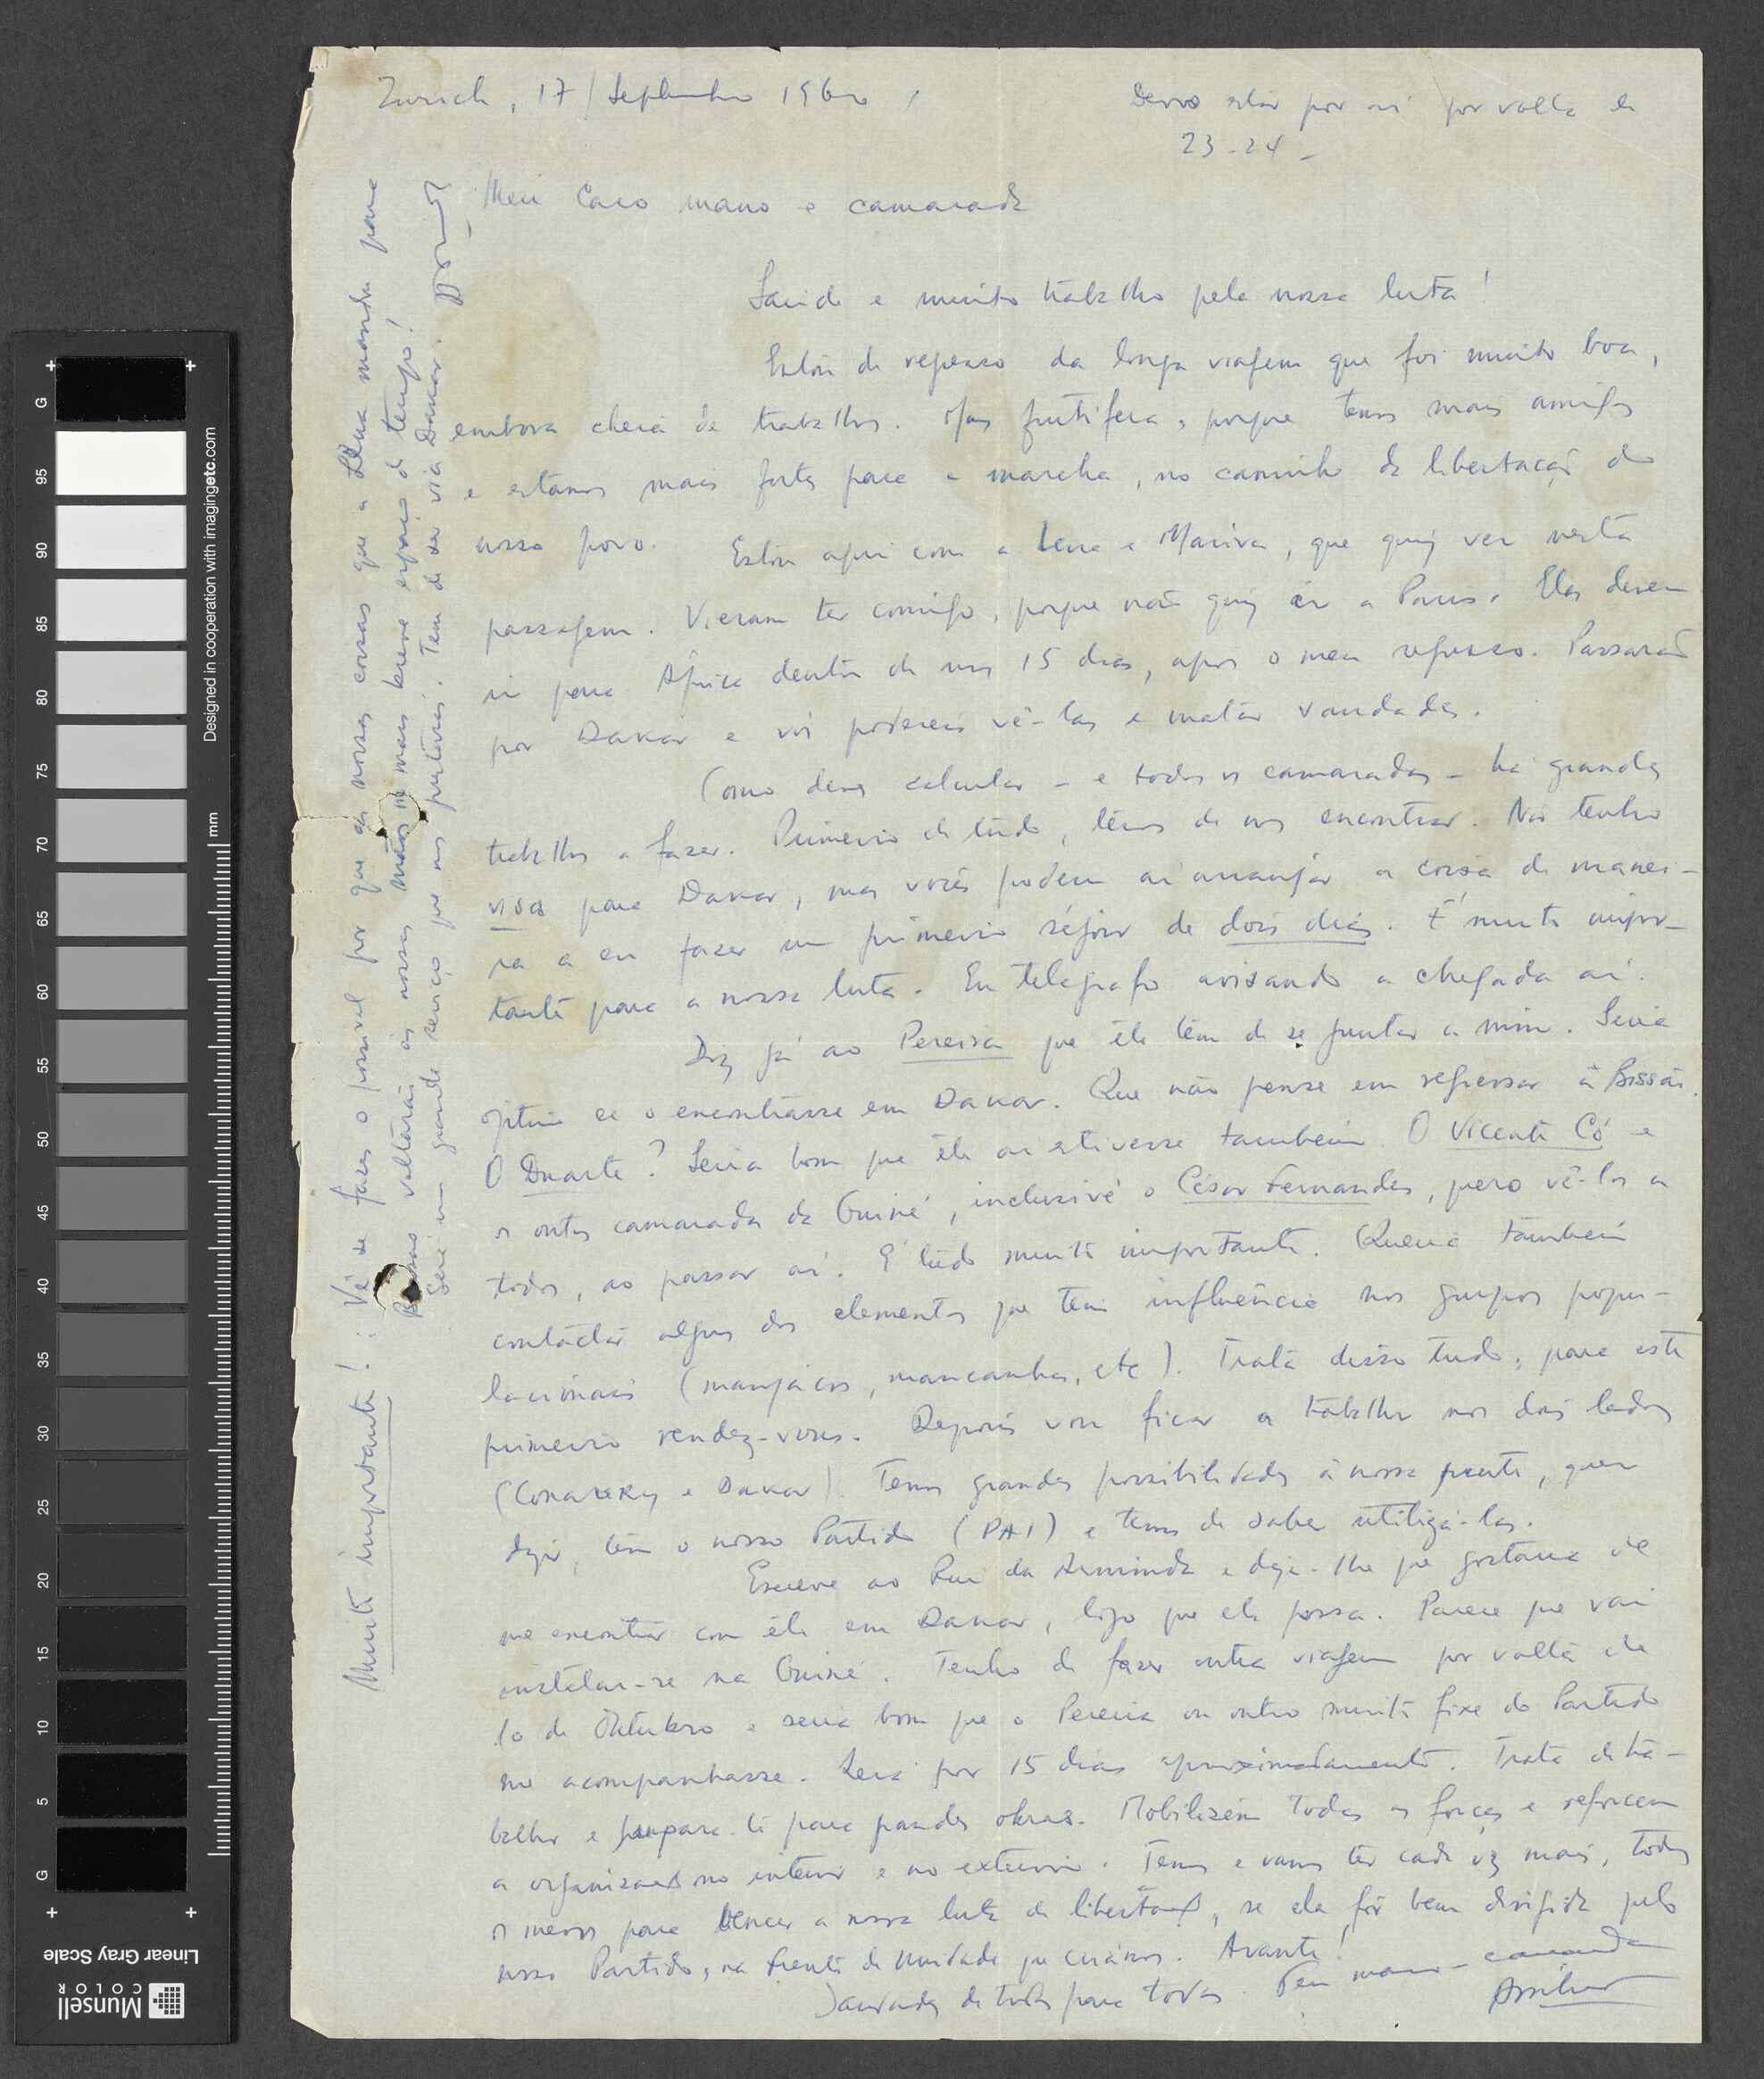 Zurich, 17/Septembro 1960
Devo estar por aí por volta de
23-24 -
Meu Caro mano e camarada
Saúde e muito trabalho pela nossa luta!
Estou de regresso da longa viagem que foi muito boa,
embora cheia de trabalhos. Mas frutífera, porque temos mais amigos
e estamos mais fortes para a marcha, no caminho da libertação do
nosso povo. Estou aqui com a Lena e Mariva, que quiz ver nesta
passagem. Vieram ter comigo, porque não quiz ir a Paris. Elas devem
ir para África dentro de uns 15 dias, após o meu regresso. Passarão
por Dakar e vós podereis vê-las e matar saudades.
Como deves calcular - e todos os camaradas - há grandes
trabalhos a fazer. Primeiro de tudo, temos de nos encontrar. Não tenho
visa para Dakar, mas vocês podem aí arranjar a coisa de manei-
ra a eu fazer um primeiro séjour de dois dias. É muito impor-
tante para a nossa luta. Eu telegrafo avisando a chegada aí.
Diz já ao Pereira que êle tem de se juntar a mim. Seria
óptimo se o encontrasse em Dakar. Que não pense em regressar à Bissau.
O Duarte? Seria bom que êle aí estivesse também. O Vicente Có e
os outros camaradas da Guiné, inclusivé o César Fernandes, quero vê-los a
todos, ao passar aí. É tudo muito importante. Queria também
contactar alguns dos elementos que têm influência nos grupos popu-
lacionais (manjacos, mancanhas, etc). Trata disso tudo, para este
primeiro rendez-vous. Depois vou ficar a trabalhar nos dois lados
(Conakry e Dakar). Temos grandes possibilidades à nossa frente, quer
dizer, tem o nosso Partido (PAI) e temos de saber utilizá-las.
Escreve ao Rui da Arminda e diz-lhe que gostaria de
me encontrar com êle em Dakar, logo que ele possa. Parece que vai
instalar-se na Guiné. Tenho de fazer outra viagem por volta de
10 de Outubro e seria bom que o Pereira ou outro muito fixe do Partido
me acompanhasse. Será por 15 dias aproximadamente. Trata de tra-
balhar e prepara-te para grandes obras. Mobilizem todas as forças e reforcem
a organização no interior e no exterior. Temos e vamos ter cada vez mais, todos
os meios para vencer a nossa luta de libertação, se ela fôr bem dirigida pelo
nosso Partido, na frente de unidade que criámos. Avante!
Saudades de todos para todos. Teu mano-camarada
Amílcar
Muito importante!: Vê se fazes o possível por que as nossas coisas que a Lena manda para
voltarão às nossas mãos no mais breve espaço de tempo!
Será um grande serviço que nos prestarás. Tem de ser via Dakar.
Designed in cooperation with imagingetc.com
mm
G 95 90 85 80 75 70 65 60 55 50 45 40 35 30 25 20 15 10 5 G
Linear Gray Scale
Munsell
COLOR